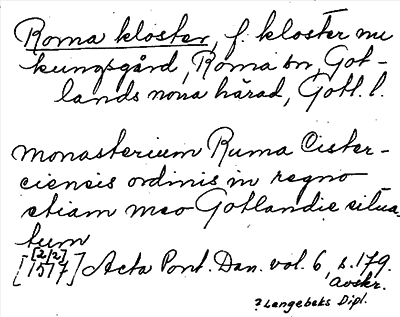 Roma kloster, f. kloster nu
kungsgård, Roma sn, Got-
lands norra härad, Gotl. l.
monasterium Ruma Cister-
ciensis ordinis in regno
etiam meo Gotlandie situa-
tum
[2/2]
[1517] Acta Pont. Dan. vol. 6, s. 179.
avskr.
? Langebeks Dipl.